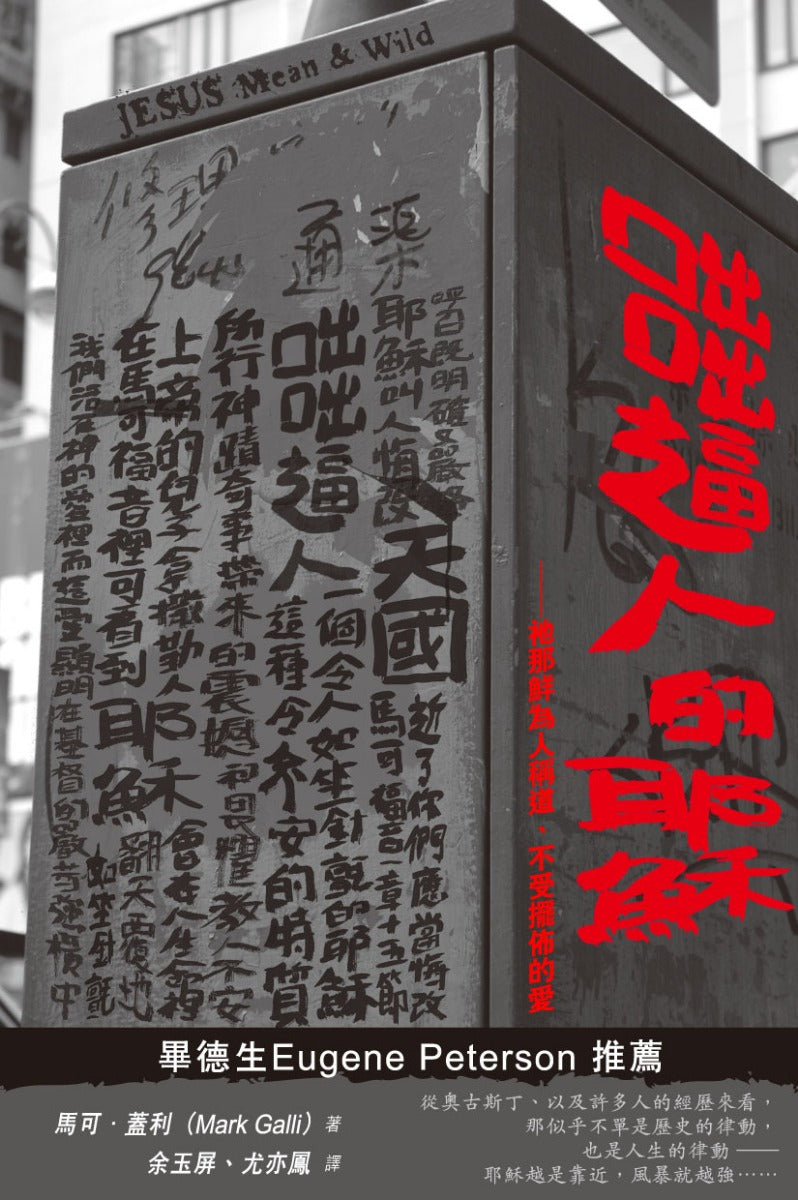 JESUS Mean & Wild
修理
通
渠
呼召既明確又嚴格
耶穌叫人悔改
天國
近了你們應當悔改
馬可福音一章十五節
一個令人如坐針氈的耶穌
咄咄逼人
這種令不安的特質
所行神蹟奇事帶來的震撼和畏懼教人不安
上帝的兒子拿撒勒人
會在人生命裡
在馬可福音裡可看到耶穌
翻天覆地
如坐針氈
我們活在神的愛裡而這愛顯明在基督的嚴苛強橫中
咄咄逼人的耶穌
——祂那鮮為人稱道．不受擺佈的愛
畢德生Eugene Peterson 推薦
馬可．蓋利（Mark Galli）著
余玉屏、尤亦鳳 譯
從奧古斯丁、以及許多人的經歷來看，
那似乎不單是歷史的律動，
也是人生的律動——
耶穌越是靠近，風暴就越強⋯⋯